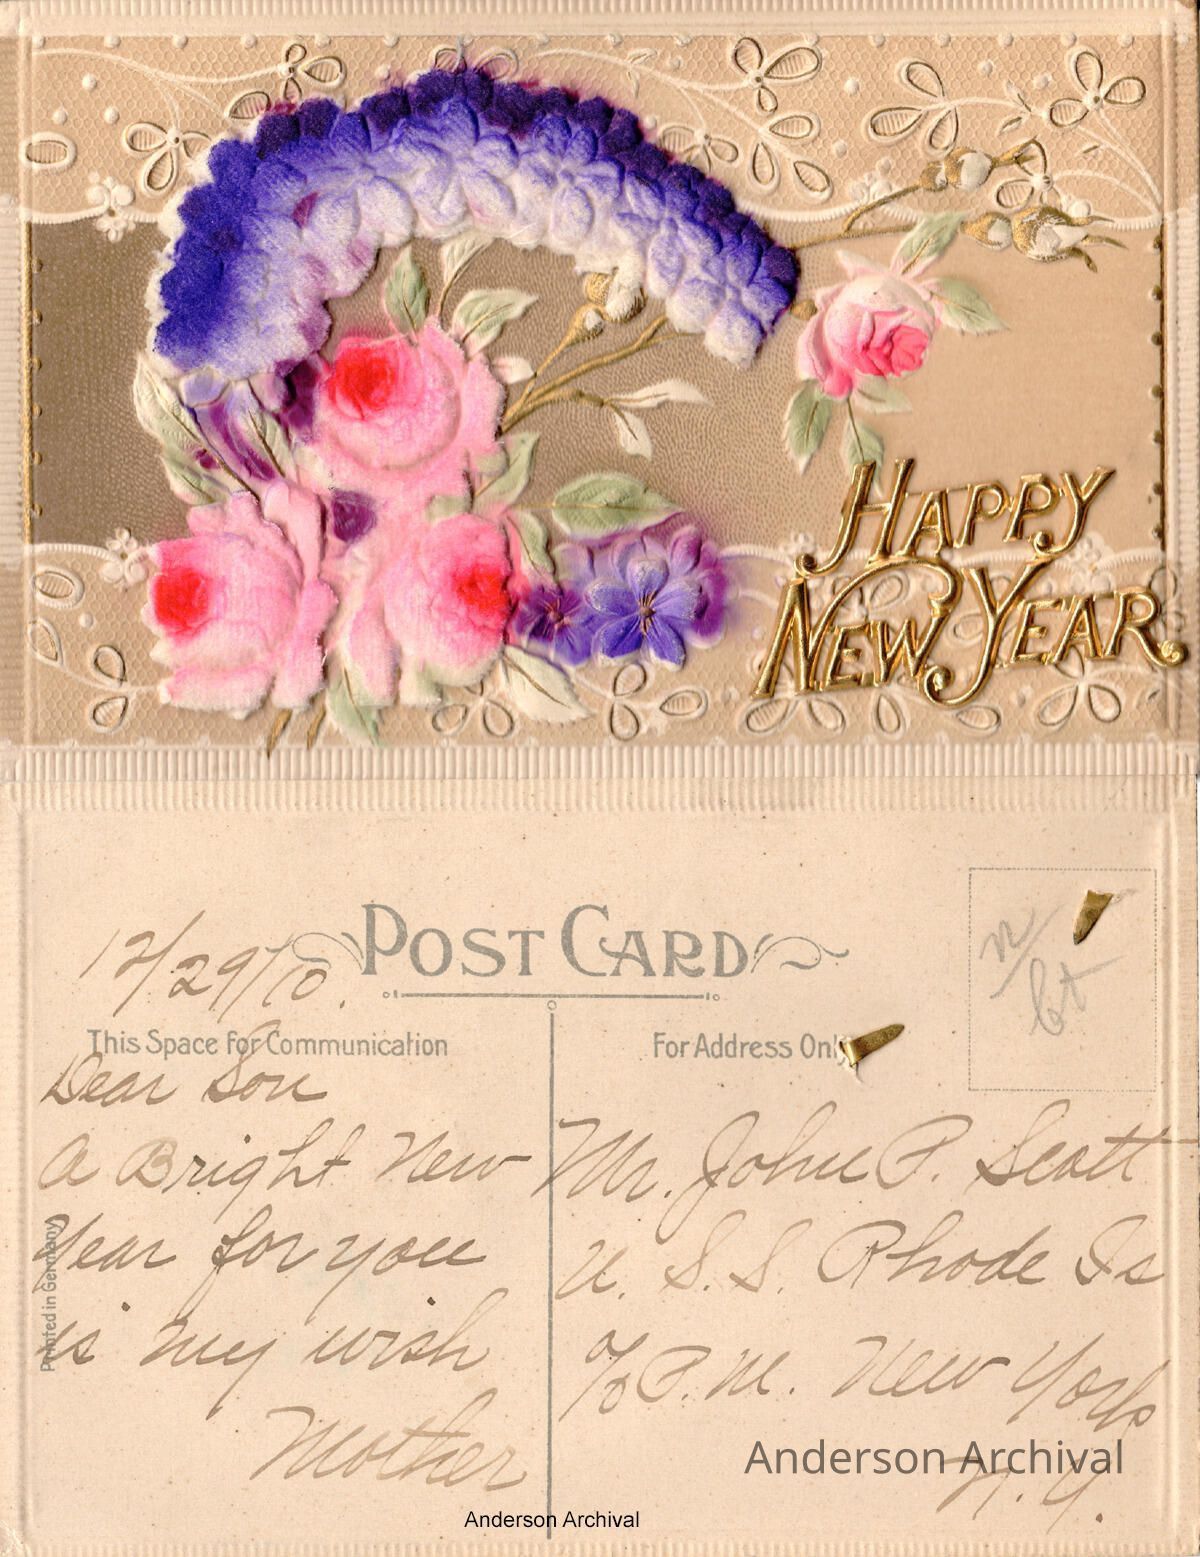 HAPPY
NEW YEAR
POST CARD
12/29/10.
This Space for Communication
For Address Only
Dear Son
A Bright New
Year for you
is my wish
Mother
Mr. John P. Scott
U.S.S. Rhode Is
c/o P.M. New York
N.Y.
Printed in Germany
Anderson Archival
Anderson Archival